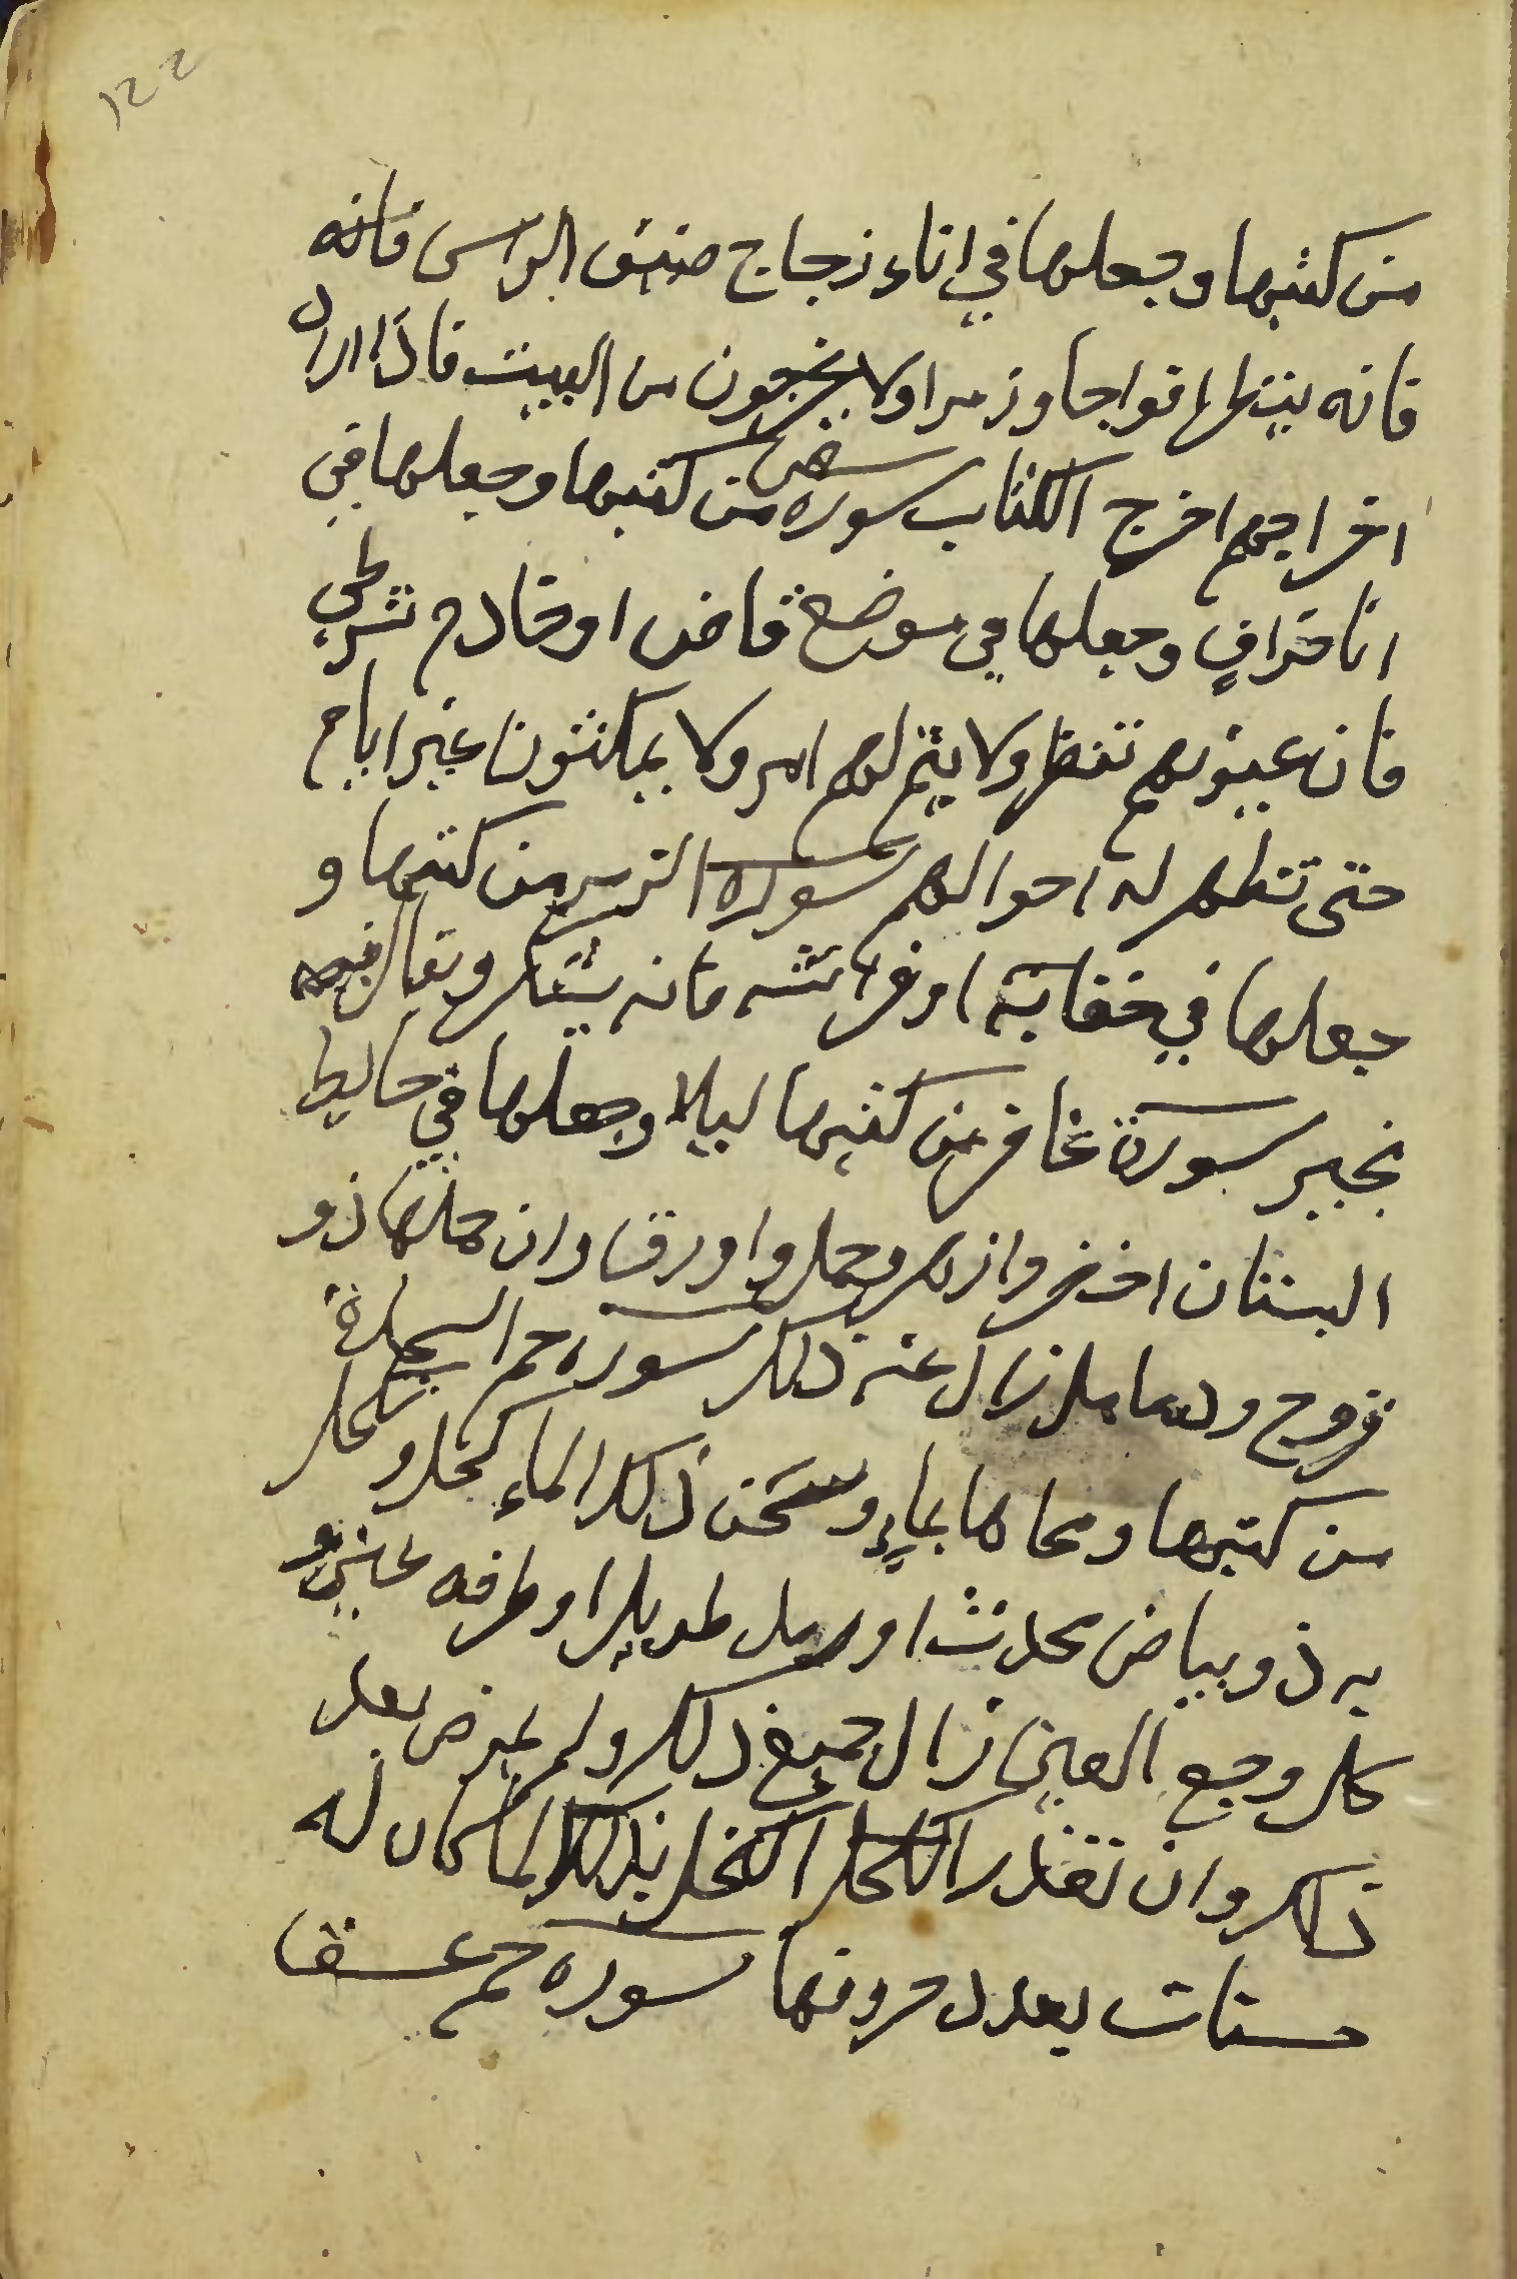 122
من كتبها وجعلها في اناء زجاج ضيق الراس فانه
فانه ينتظرها فواجا وزمرا ولا يخرجون من البيت فاذا اراد
اخراجهم اخرج الكتاب سورة ص من كتبها وجعلها في
انا خزاف وجعلها في موضع قاض او خادم شرطي
فان عيوبهم تظهر ولا يتم لهم امر ولا يمكثون غير ايام
حتى تظهر له احوالهم سورة الزمر من كتبها و
جعلها في خفايه او فراشه فانه يشكر ويقال فيه
بخير سورة غافر من كتبها ليلا وجعلها في حايط
البستان اخضر وازهر وحمل واورق وان حملها ذو
قروح ودمامل زال عنه ذلك سورة حم السجدة
من كتبها ومحاها بماء وسحن ذلك الماء كحل وكحل
به ذو بياض محدث او رمل طويلا او طرفه عين و
كل وجع العين زال جميع ذلك ولم يمرض بعد
ذلك وان تعذر الكحل اكتحل بذلك الماء كان له
حسنات بعدد حروفها سورة حم عسق